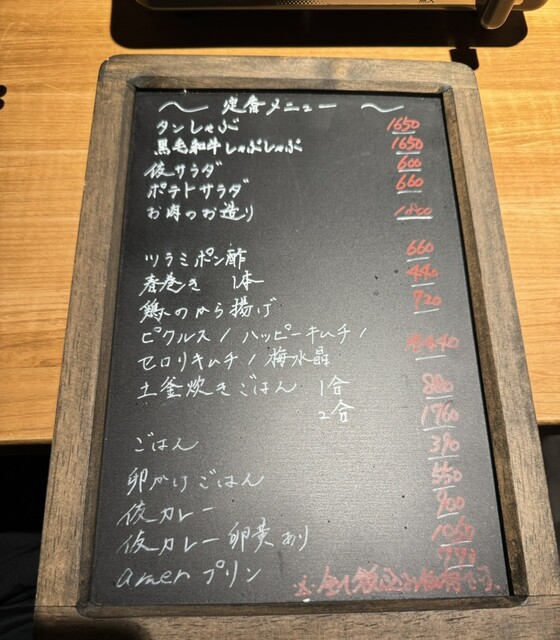 〜 定番メニュー 〜
タンしゃぶ 1650
黒毛和牛しゃぶしゃぶ 1650
俺サラダ 600
ポテトサラダ 660
お肉のお造り 1800
ツラミポン酢 660
春巻き 1本 440
鶏のから揚げ 720
ピクルス / ハッピーキムチ /
セロリキムチ / 梅水晶 各440
土釜炊きごはん 1合 880
2合 1760
ごはん 390
卵かけごはん 550
俺カレー 900
俺カレー 卵黄あり 1060
amen プリン
※全て税込み価格です。